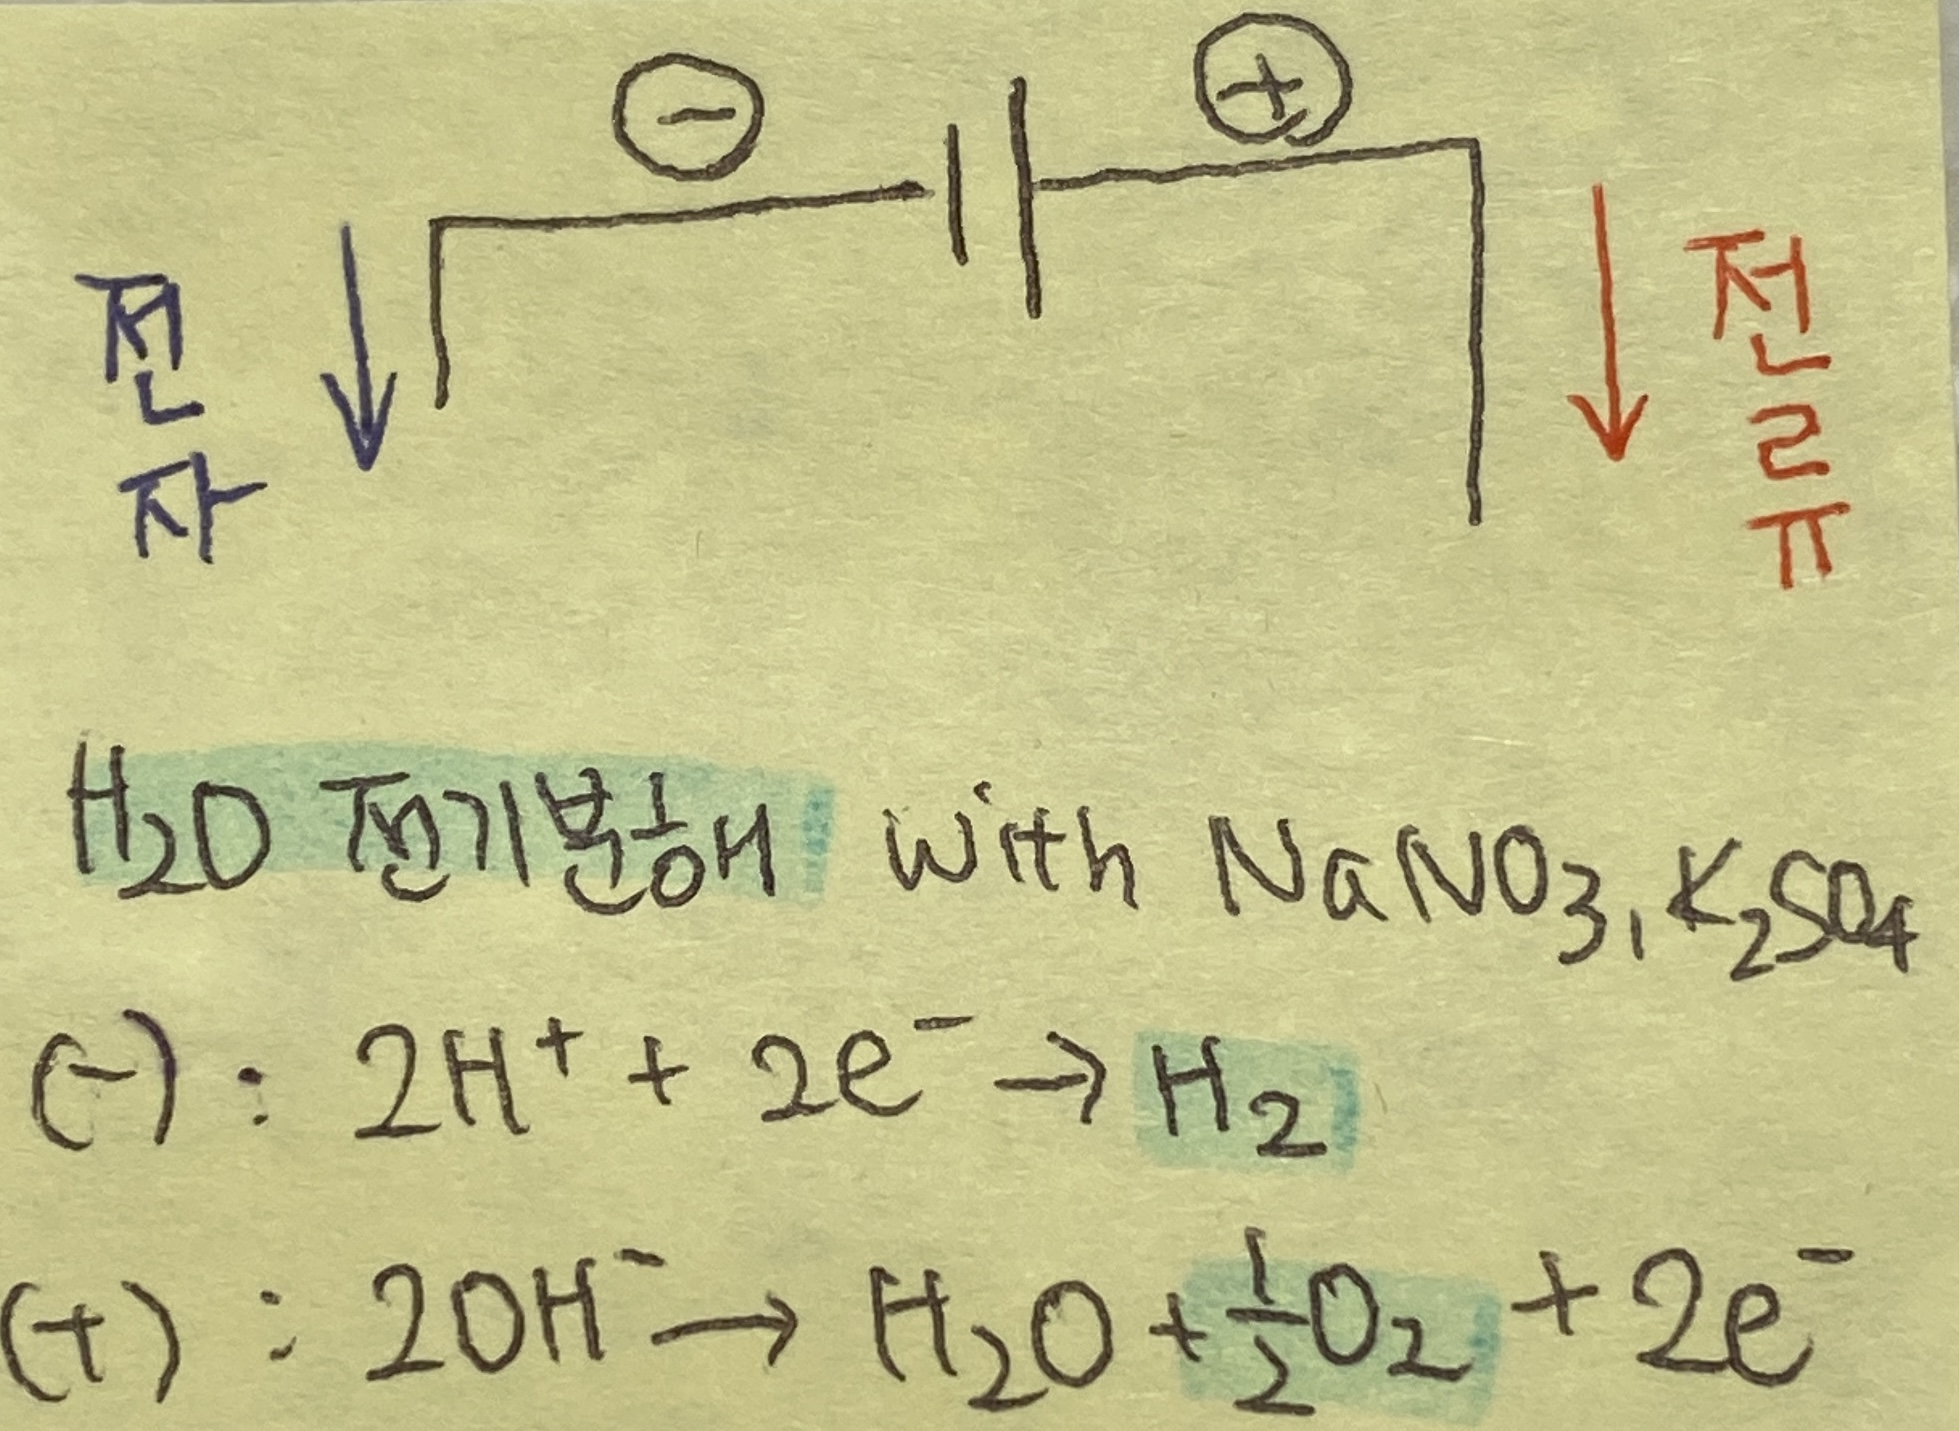 ⊖ ⊕
전자 전류
H₂O 전기분해 with NaNO₃, K₂SO₄
(-) : 2H⁺ + 2e⁻ → H₂
(+) : 2OH⁻ → H₂O + ½O₂ + 2e⁻